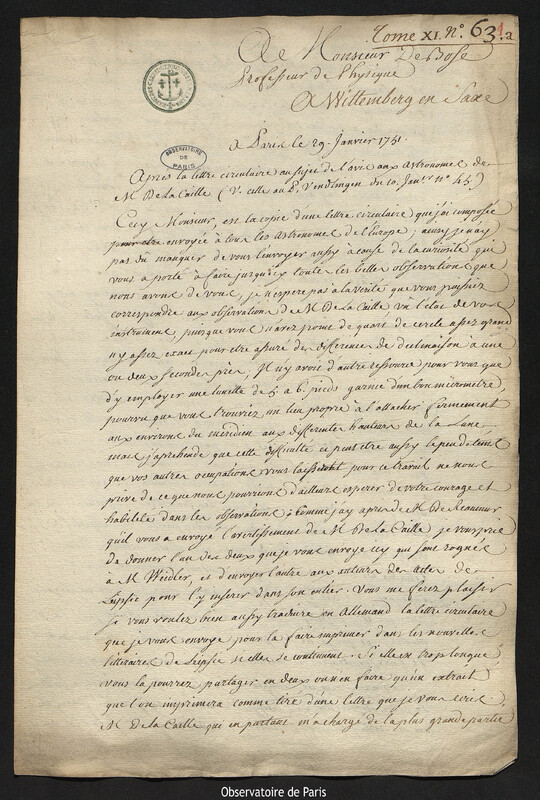 Tome XI. N.º 63 1.a
A Monsieur De Bose
Professeur de Physique
A Wittemberg en Saxe
OBSERVATOIRE DE PARIS
a Paris le 29. Janvier 1751.
Après la lettre circulaire au sujet de l'avis aux Astronomes de
M. De la Caille (V. celle au P. Vendlingen du 10. Janv.r N.º 45.)
Cecy Monsieur, est la copie d'une lettre circulaire que j'ai composée
pour etre envoyée à tous les Astronomes de l'Europe; aussy je n'ay
pas du manquer de vous l'envoyer aussy à cause de la curiosité qui
vous a porté à faire jusqu'icy toutes les belles observations que
nous avons de vous, je n'espere pas à la verité que vous puissiez
correspondre aux observations de M. De la Caille vu l'etat de vos
instrumens, puisque vous n'avez point de quart de cercle assez grand
ny assez exact pour etre assuré des differences de declinaison à une
ou deux secondes près; Il n'y avoit d'autre ressource pour vous que
d'y employer une lunette de 5 a 6. pieds garnie d'un bon micrometre,
pourvu que vous trouviez un lieu propre à l'attacher fermement
aux environs du meridien aux differentes hauteurs de la Lune;
mais j'aprehende que cette difficulté et peut etre aussy le peu de tems
que vos autres occupations vous laisseront pour ce travail ne nous
prive de ce que nous pourrions d'ailleurs esperer de votre courage et
habileté dans les observations; Comme j'ay apris de M. De Reaumur
qu'il vous a envoyé l'avertissement de M. De la Caille je vous prie
de donner l'un des deux que je vous envoye icy qui sont rognés
à M. Weidler, et d'envoyer l'autre aux auteurs des actes de
Leipsic pour l'y inserer dans son entier. Vous me ferez plaisir
si vous voulez bien aussy traduire en Allemand la lettre circulaire
que je vous envoye pour la faire imprimer dans les nouvelles
litteraires de Leipsic si elles se continuent. Si elle est trop longue
vous la pourrez partager en deux ou n'en faire qu'un extrait
que l'on imprimera comme tiré d'une lettre que je vous ecris.
M. De la Caille qui en partant m'a chargé de la plus grande partie
Observatoire de Paris